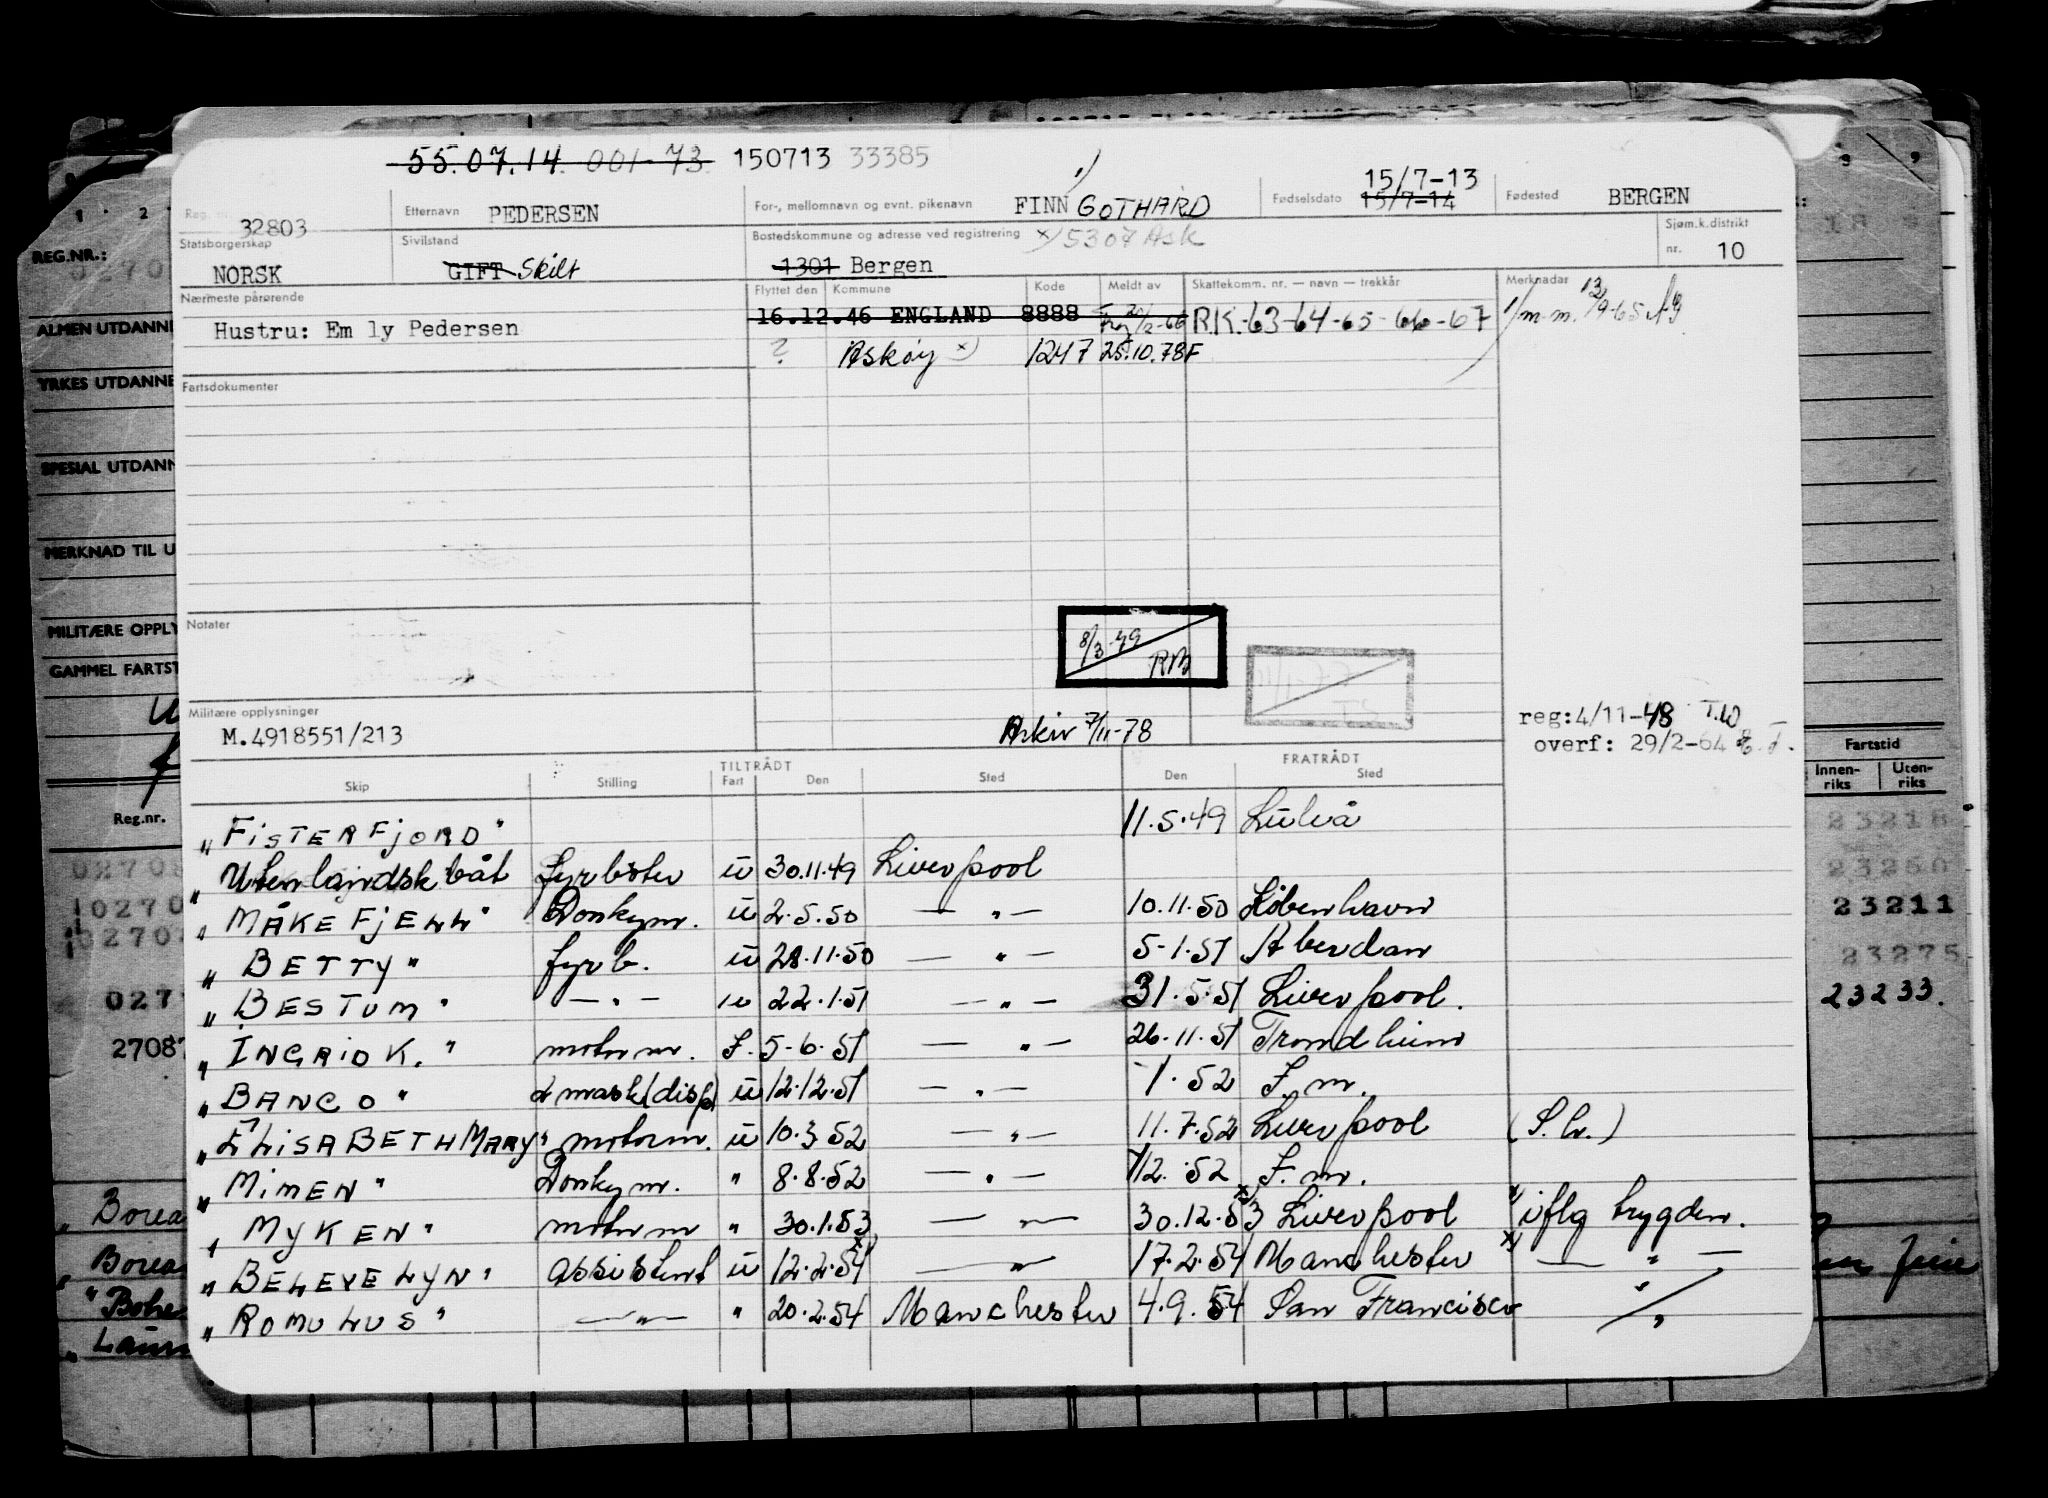 55.07.14. 001-73 150713 33385
15/7-13
Reg. nr. 32803 Etternavn PEDERSEN For-, mellomnavn og evnt. pikenavn FINN GOTHARD Fødselsdato 15/7-14 Fødested BERGEN
Statsborgerskap NORSK Sivilstand GIFT Skilt Bostedskommune og adresse ved registrering x) 5307 Ask Sjøm.k.distrikt nr. 10
1301 Bergen
Nærmeste pårørende Flyttet den Kommune Kode Meldt av Skattekomm. nr. — navn — trekkår Merknader
Hustru: Em ly Pedersen 16.12.46 ENGLAND 8888 R.K.-63-64-65-66-67
? Askøy x) 1247 25.10.78F
Fartsdokumenter
Notater
8/3-49 RM
Militære opplysninger
M.4918551/213 Arkiv 7/11-78
reg:4/11-48 T.W
overf: 29/2-64
TILTRÅDT FRATRÅDT
Skip Stilling Fart Den Sted Den Sted
"FISTERFJORD" 11.5.49 Luleå
"Utenlandsk båt fyrbøter u 30.11.49 Liverpool
"MÅKEFJELL" Donkym. u 2.5.50 — " — 10.11.50 København
"BETTY" fyrb. u 28.11.50 — " — 5-1.51 Aberdan
"BESTUM" — " — u 22.1.51 — " — 31.5.51 Liverpool.
"INGRID K." motorm. I. 5-6.51 — " — 26.11.51 Trondheim
"BANCO" mask(disp) u 12.12.51 — " — -1.52 F.m.
"ELISABETH MARY" motorm. u 10.3.52 — " — 11.7.52 Liverpool (S.br.)
"MIMEN" Donkym. " 8.8.52 — " — /12.52 F.m.
"MYKEN" motorm " 30.1.53 — " — 30.12.53 x) Liverpool x) iflg trygden.
"BELEVELYN" assistent u 12.2.54 x) — " — 17.2.54 Manchester x) — " —
"ROMULUS" — " — " 20.2.54 Manchester 4.9.54 San Francisco
REG.NR.:
ALMEN UTDANNE
YRKES UTDANNE
SPESIAL UTDANN
MERKNAD TIL U
MILITÆRE OPPLY
GAMMEL FARTST
Reg.nr.
27087
Fartstid
Innen-riks Uten-riks
23218
23211
23275
23233.